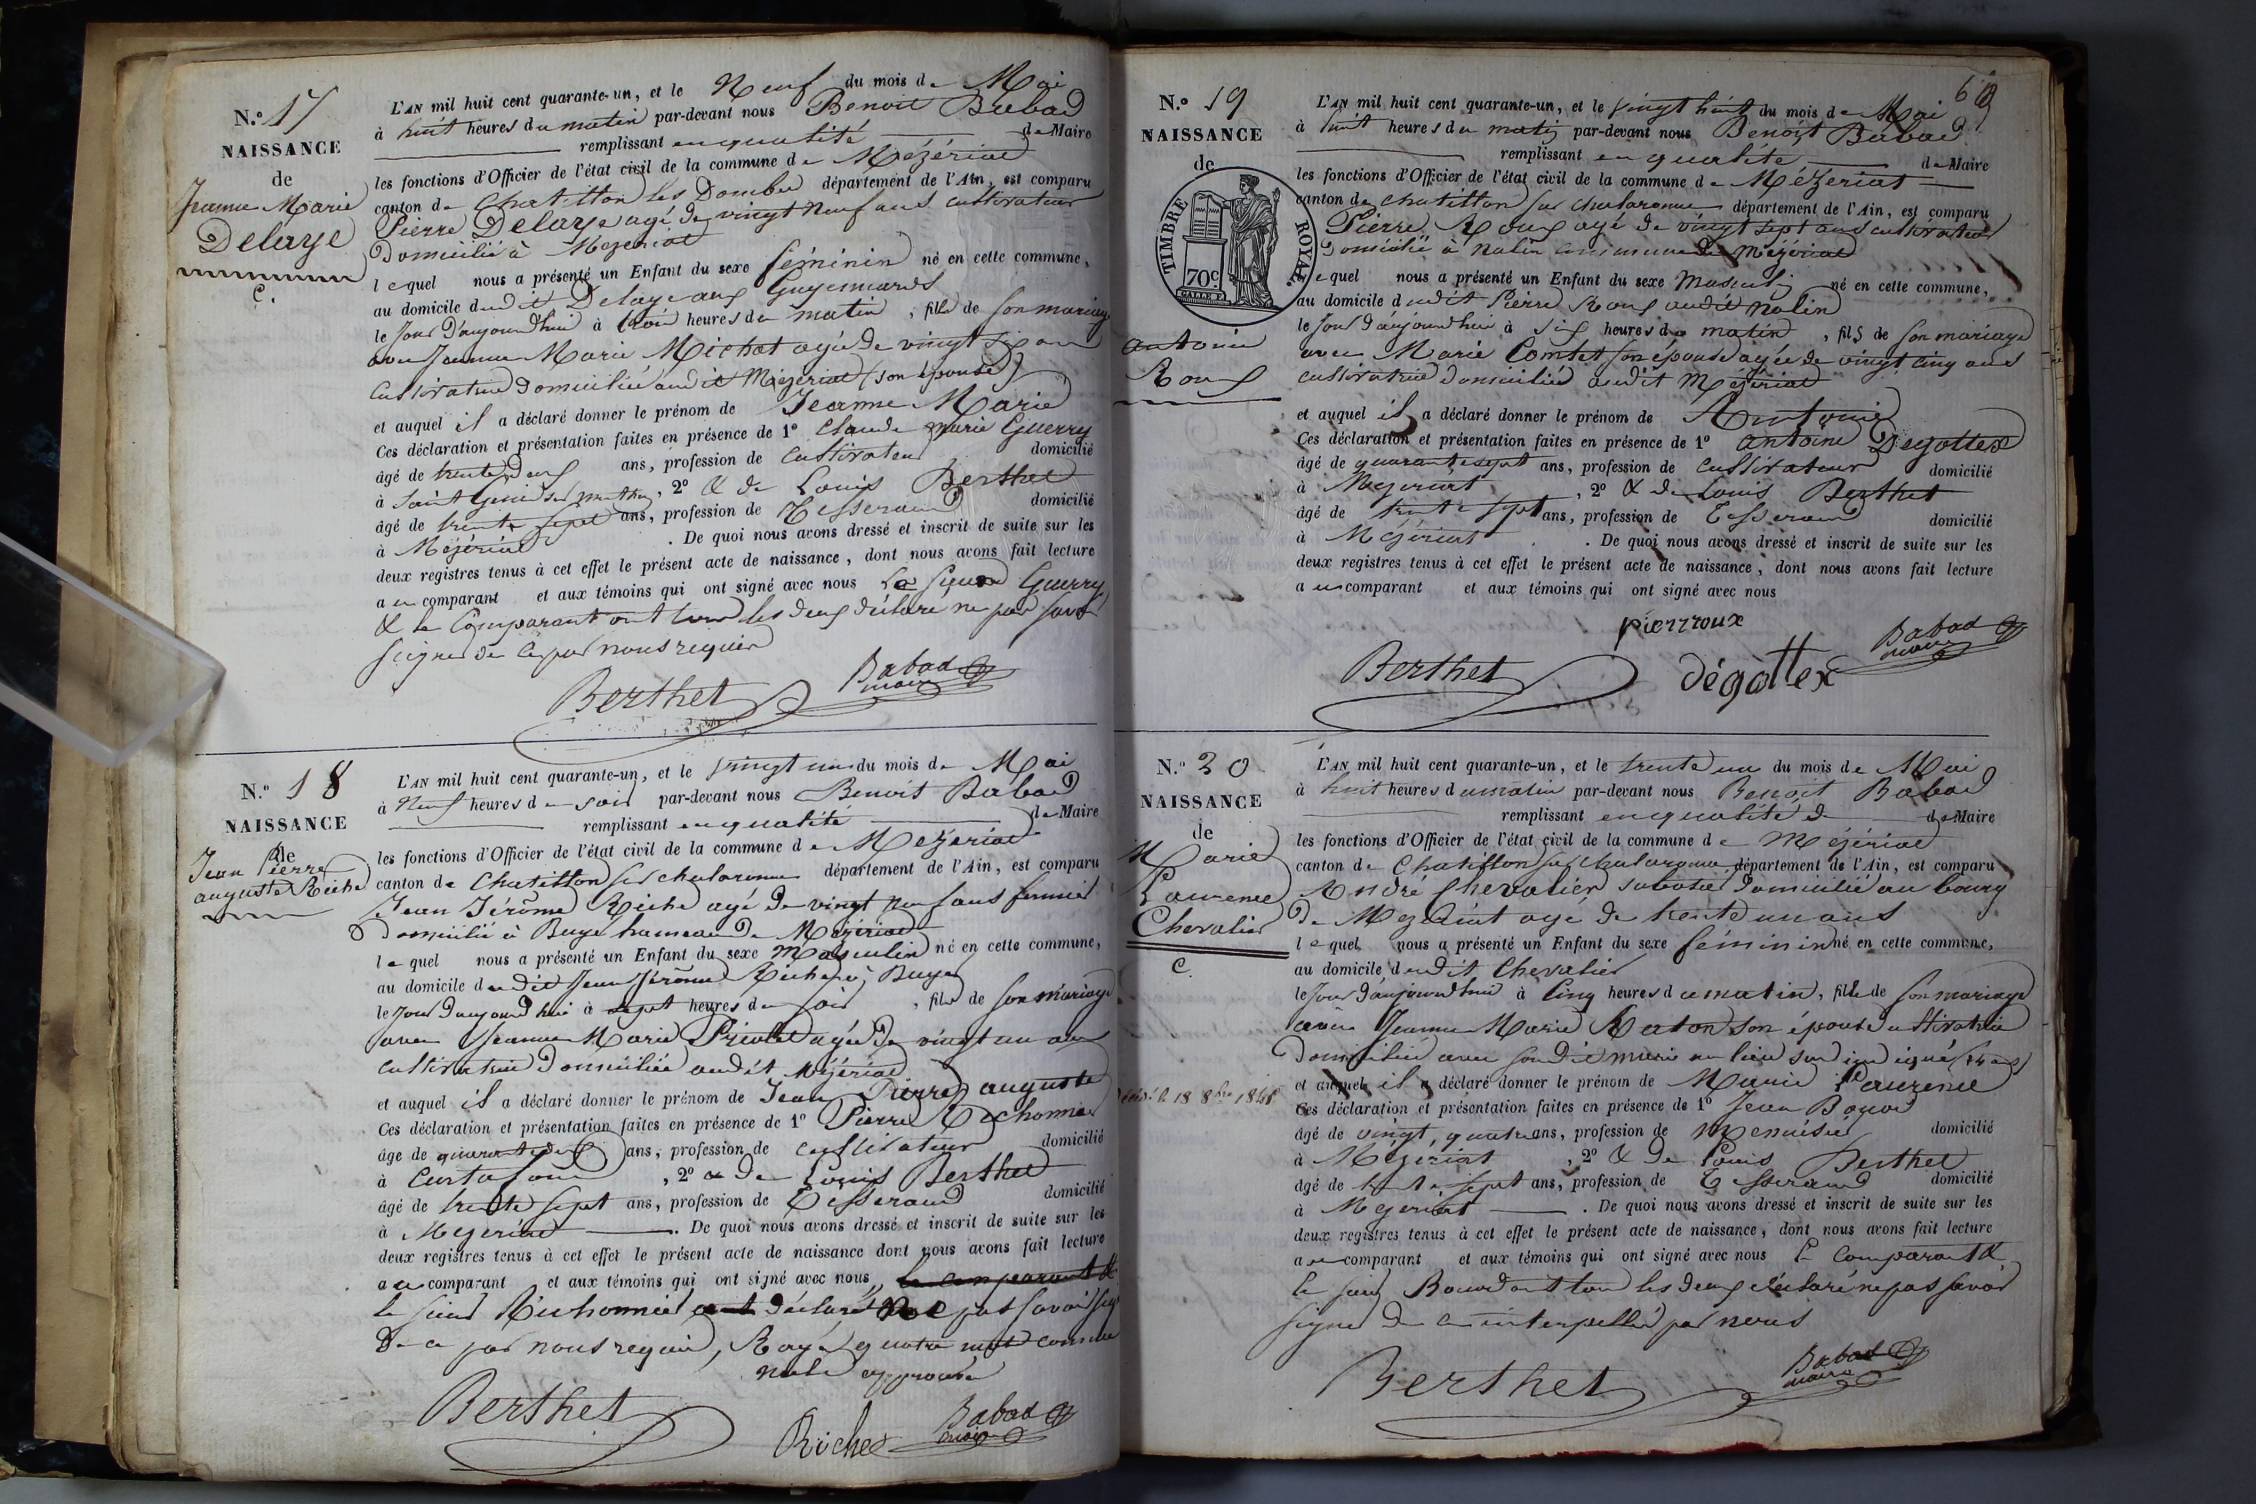 N.º 17
NAISSANCE
de
Jeanne Marie
Delaye
C.
L'AN mil huit cent quarante-un, et le Neuf du mois de Mai
à huit heures du matin par-devant nous Benoit Babad
remplissant en qualité de Maire
les fonctions d'Officier de l'état civil de la commune de Mézériat
canton de Chatillon les Dombes département de l'Ain, est comparu
Pierre Delaye agé de vingt neuf ans cultivateur
Domicilié à Mezeriat
lequel nous a présenté un Enfant du sexe féminin né en cette commune,
au domicile dudit Delaye aux Guyennards
le jour d'aujourd'hui à trois heures du matin, fille de son mariage
avec Jeanne Marie Michat agée de vingt six ans
cultivatrice domiciliée audit Mézériat (son épouse)
et auquel il a déclaré donner le prénom de Jeanne Marie
Ces déclaration et présentation faites en présence de 1º Claude Marie Guerry
âgé de trente deux ans, profession de cultivateur domicilié
à Saint Genis sur menthon, 2º & de Louis Berthet
âgé de trente sept ans, profession de Tesserand domicilié
à Mézériat. De quoi nous avons dressé et inscrit de suite sur les
deux registres tenus à cet effet le présent acte de naissance, dont nous avons fait lecture
au comparant et aux témoins qui ont signé avec nous Guerry
& le Comparant ont tous les deux déclaré ne pas savoir
signer de ce par nous requis
Berthet
Babad
maire
N.º 18
NAISSANCE
de
Jean Pierre
auguste Riche
L'AN mil huit cent quarante-un, et le vingt un du mois de Mai
à Neuf heures du soir par-devant nous Benoit Babad
remplissant en qualité de Maire
les fonctions d'Officier de l'état civil de la commune de Mézériat
canton de Chatillon sur chalaronne département de l'Ain, est comparu
Jean Jérôme Riche agé de vingt neuf ans fermier
domicilié à Buye hameau de Mézériat
lequel nous a présenté un Enfant du sexe Masculin né en cette commune,
au domicile dudit Jean Jérôme Riche à Buye
le jour d'aujourd'hui à sept heures du soir, fils de son mariage
avec Jeanne Marie agée de vingt un ans
cultivatrice domiciliée audit Mézériat
et auquel il a déclaré donner le prénom de Jean Pierre auguste
Ces déclaration et présentation faites en présence de 1º Pierre Rechonnier
âgé de quarante deux ans, profession de cultivateur domicilié
à Curtafond, 2º & de Louis Berthet
âgé de trente sept ans, profession de Tesserand domicilié
à Mezeriat. De quoi nous avons dressé et inscrit de suite sur les
deux registres tenus à cet effet le présent acte de naissance dont nous avons fait lecture
au comparant et aux témoins qui ont signé avec nous, le comparant &
le sieur Rechonnier ont déclaré ne pas savoir signer
de ce par nous requis, Rayé quatre mots comme
nuls approuvé
Berthet
Riche
Babad
maire
6
N.º 19
NAISSANCE
de
TIMBRE ROYAL
70c
antoine
Roux
L'AN mil huit cent quarante-un, et le vingt huit du mois de Mai
à huit heures du matin par-devant nous Benoit Babad
remplissant en qualité de Maire
les fonctions d'Officier de l'état civil de la commune de Mézériat
canton de chatillon sur chalaronne département de l'Ain, est comparu
Pierre Roux agé de vingt sept ans cultivateur
domicilié à Nalin commune de Mézériat
lequel nous a présenté un Enfant du sexe Masculin né en cette commune,
au domicile dudit Pierre Roux audit Nalin
le jour d'aujourdhui à six heures du matin, fils de son mariage
avec Marie Comtet son épouse agée de vingt cinq ans
cultivatrice domiciliée audit Mézériat
et auquel il a déclaré donner le prénom de Antoine
Ces déclaration et présentation faites en présence de 1º antoine Degottex
âgé de quarante sept ans, profession de cultivateur domicilié
à Mezeriat, 2º & de Louis Berthet
âgé de trente sept ans, profession de Tesserand domicilié
à Mézériat. De quoi nous avons dressé et inscrit de suite sur les
deux registres tenus à cet effet le présent acte de naissance, dont nous avons fait lecture
au comparant et aux témoins qui ont signé avec nous
pierrroux
Berthet
dégottex
Babad
maire
N.º 20
NAISSANCE
de
Marie
Laurence
Chevalier
C.
décédé le 18 8bre
L'AN mil huit cent quarante-un, et le trente un du mois de Mai
à huit heures du matin par-devant nous Benoit Babad
remplissant en qualité de Maire
les fonctions d'Officier de l'état civil de la commune de Mézériat
canton de Chatillon sur chalaronne département de l'Ain, est comparu
André Chevalier sabotier domicilié au bourg
de Mezériat agé de trente un ans
lequel nous a présenté un Enfant du sexe féminin né en cette commune,
au domicile dudit Chevalier
le jour d'aujourdhui à Cinq heures du matin, fille de son mariage
avec Jeanne Marie Raton son épouse cultivatrice
domiciliée avec son dit mari au lieu sus indiqué
et auquel il a déclaré donner le prénom de Marie Laurence
Ces déclaration et présentation faites en présence de 1º Jean
âgé de vingt quatre ans, profession de Menuisier domicilié
à Mézériat, 2º & de Louis Berthet
âgé de trente sept ans, profession de Tesserand domicilié
à Mezeriat. De quoi nous avons dressé et inscrit de suite sur les
deux registres tenus à cet effet le présent acte de naissance, dont nous avons fait lecture
au comparant et aux témoins qui ont signé avec nous le Comparant &
le sieur ont tous les deux déclaré ne pas savoir
signer de ce interpellés par nous
Berthet
Babad
maire